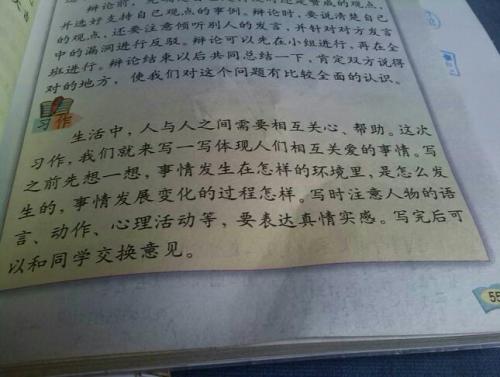 辩论前，
的观点，
并选好支持自己观点的事例。辩论时，要说清楚自己
的观点，还要注意倾听别人的发言，并针对对方发言
中的漏洞进行反驳。辩论可以先在小组进行，再在全
班进行。辩论结束以后共同总结一下，肯定双方说得
对的地方，使我们对这个问题有比较全面的认识。
习作
生活中，人与人之间需要相互关心、帮助。这次
习作，我们就来写一写体现人们相互关爱的事情。写
之前先想一想，事情发生在怎样的环境里，是怎么发
生的，事情发展变化的过程怎样。写时注意人物的语
言、动作、心理活动等，要表达真情实感。写完后可
以和同学交换意见。
55